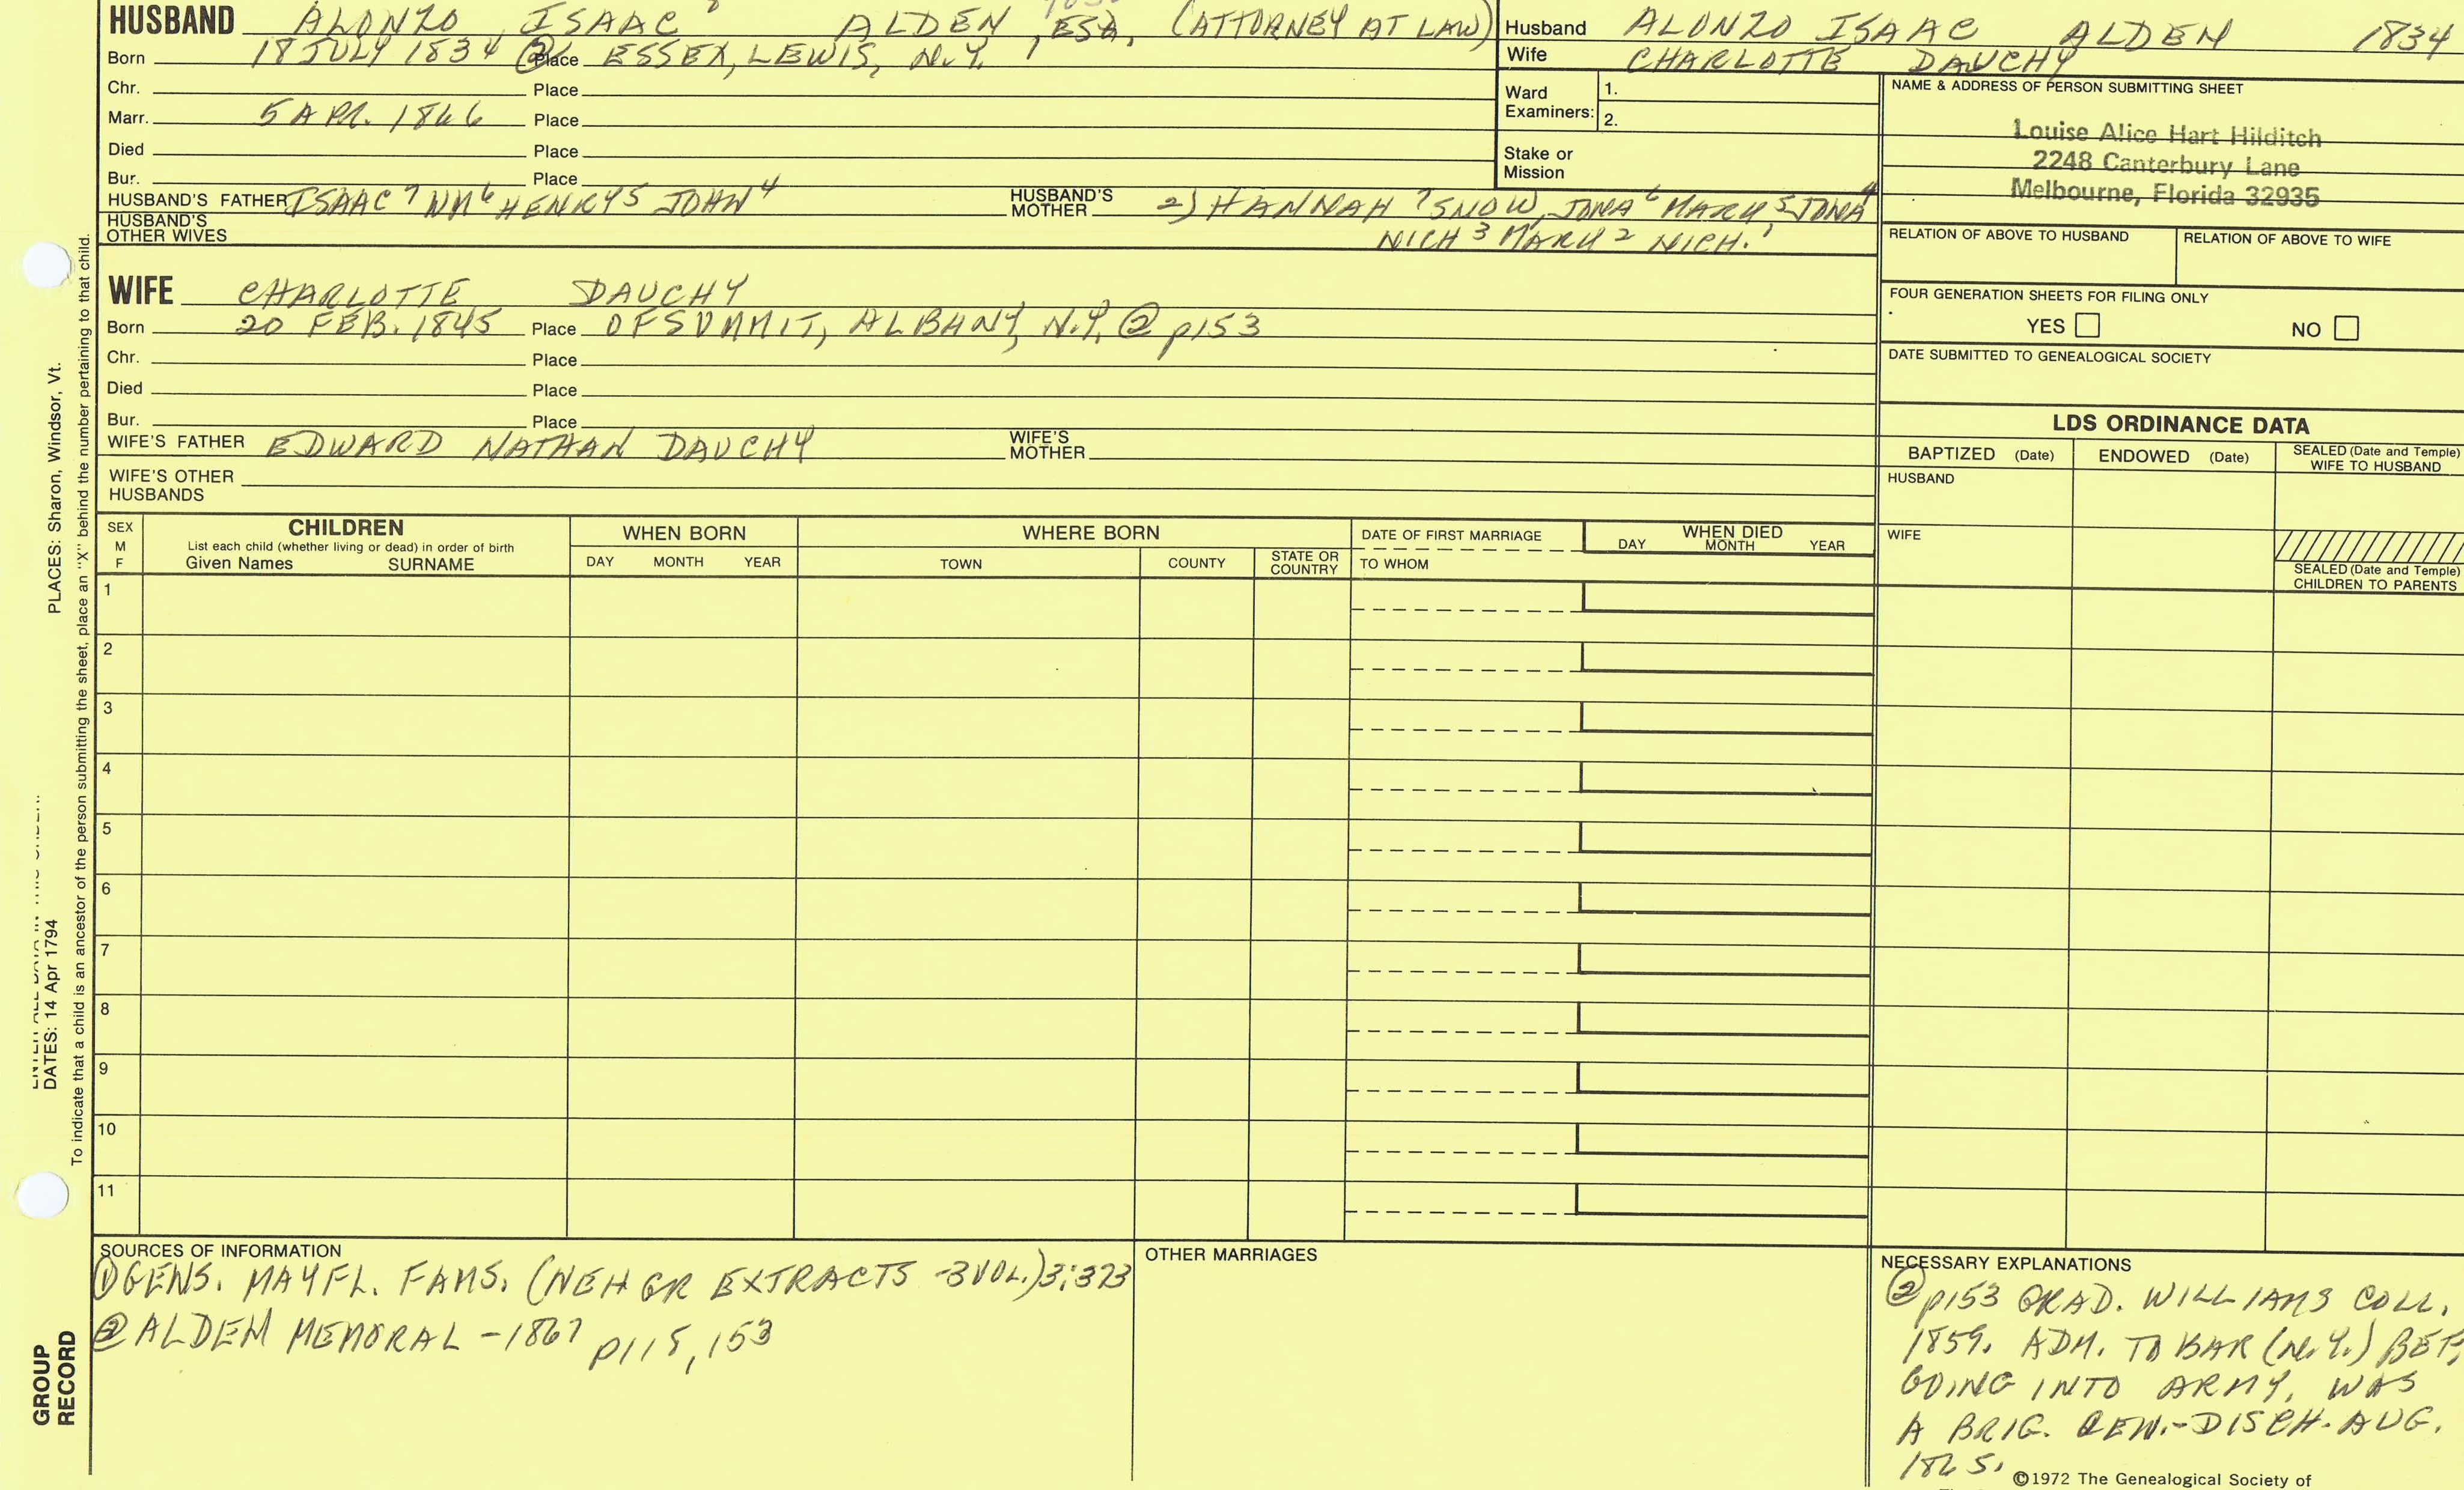 HUSBAND ALONZO ISAAC ALDEN, ESQ. (ATTORNEY AT LAW)
Born 18 JULY 1834 @ Place ESSEX, LEWIS, N.Y.
Chr. Place
Marr. 5 APR. 1866 Place
Died Place
Bur. Place
HUSBAND'S FATHER ISAAC 7 WM 6 HENRY 5 JOHN 4 HUSBAND'S MOTHER 2) HANNAH 7 SNOW, JONA 6 MARK 5 JONA 4
HUSBAND'S OTHER WIVES NICH 3 MARK 2 NICH. 1
WIFE CHARLOTTE DAUCHY
Born 20 FEB. 1845 Place OF SUMMIT, ALBANY, N.Y. @ p153
Chr. Place
Died Place
Bur. Place
WIFE'S FATHER EDWARD NATHAN DAUCHY WIFE'S MOTHER
WIFE'S OTHER HUSBANDS
Husband ALONZO ISAAC ALDEN 1834
Wife CHARLOTTE DAUCHY
Ward Examiners: 1.
2.
Stake or Mission
NAME & ADDRESS OF PERSON SUBMITTING SHEET
Louise Alice Hart Hilditch
2248 Canterbury Lane
Melbourne, Florida 32935
RELATION OF ABOVE TO HUSBAND RELATION OF ABOVE TO WIFE
FOUR GENERATION SHEETS FOR FILING ONLY
YES NO
DATE SUBMITTED TO GENEALOGICAL SOCIETY
LDS ORDINANCE DATA
BAPTIZED (Date) ENDOWED (Date) SEALED (Date and Temple) WIFE TO HUSBAND
HUSBAND
WIFE
SEALED (Date and Temple) CHILDREN TO PARENTS
SEX M F CHILDREN WHEN BORN WHERE BORN DATE OF FIRST MARRIAGE WHEN DIED
List each child (whether living or dead) in order of birth
Given Names SURNAME DAY MONTH YEAR TOWN COUNTY STATE OR COUNTRY TO WHOM DAY MONTH YEAR
1
2
3
4
5
6
7
8
9
10
11
SOURCES OF INFORMATION
① GENS. MAYFL. FAMS. (NEHGR EXTRACTS -3 VOL.) 3:373
@ ALDEN MEMORAL - 1867 p115, 153
OTHER MARRIAGES
NECESSARY EXPLANATIONS
② p153 GRAD. WILLIAMS COLL.
1859. ADM. TO BAR (N.Y.) BEF.
GOING INTO ARMY. WAS
A BRIG. GEN. - DISCH. AUG.
1865.
©1972 The Genealogical Society of
PLACES: Sharon, Windsor, Vt.
DATES: 14 Apr 1794
To indicate that a child is an ancestor of the person submitting the sheet, place an "X" behind the number pertaining to that child.
GROUP
RECORD